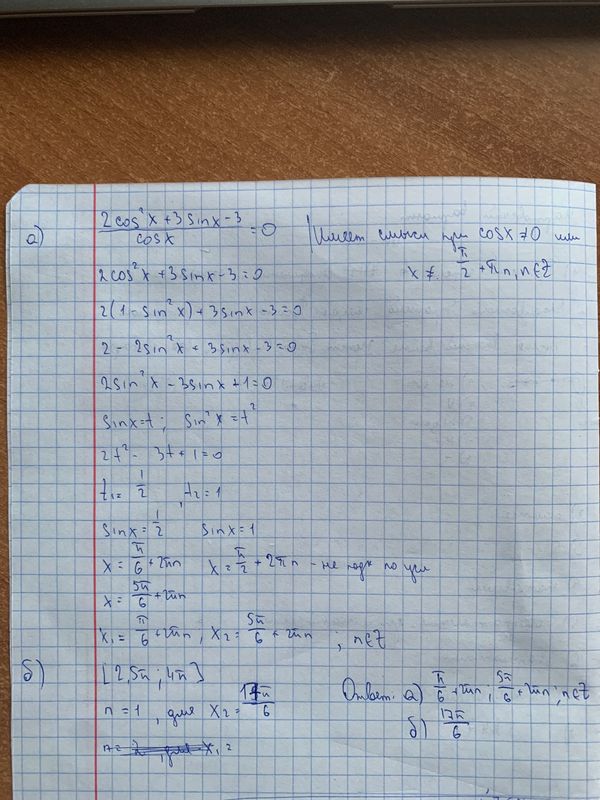 а) (2cos²x + 3sinx - 3)/cosx = 0 | Имеет смысл при cosx ≠ 0 или
x ≠ π/2 + πn, n∈Z
2cos²x + 3sinx - 3 = 0
2(1 - sin²x) + 3sinx - 3 = 0
2 - 2sin²x + 3sinx - 3 = 0
2sin²x - 3sinx + 1 = 0
sinx = t ; sin²x = t²
2t² - 3t + 1 = 0
t₁ = 1/2 , t₂ = 1
sinx = 1/2 sinx = 1
x = π/6 + 2πn x = π/2 + 2πn - не подх по усл
x = 5π/6 + 2πn
x₁ = π/6 + 2πn , x₂ = 5π/6 + 2πn ; n∈Z
б) [2,5π ; 4π]
n = 1 , для x₂ = 17π/6
Ответ: а) π/6 + 2πn ; 5π/6 + 2πn ; n∈Z
б) 17π/6